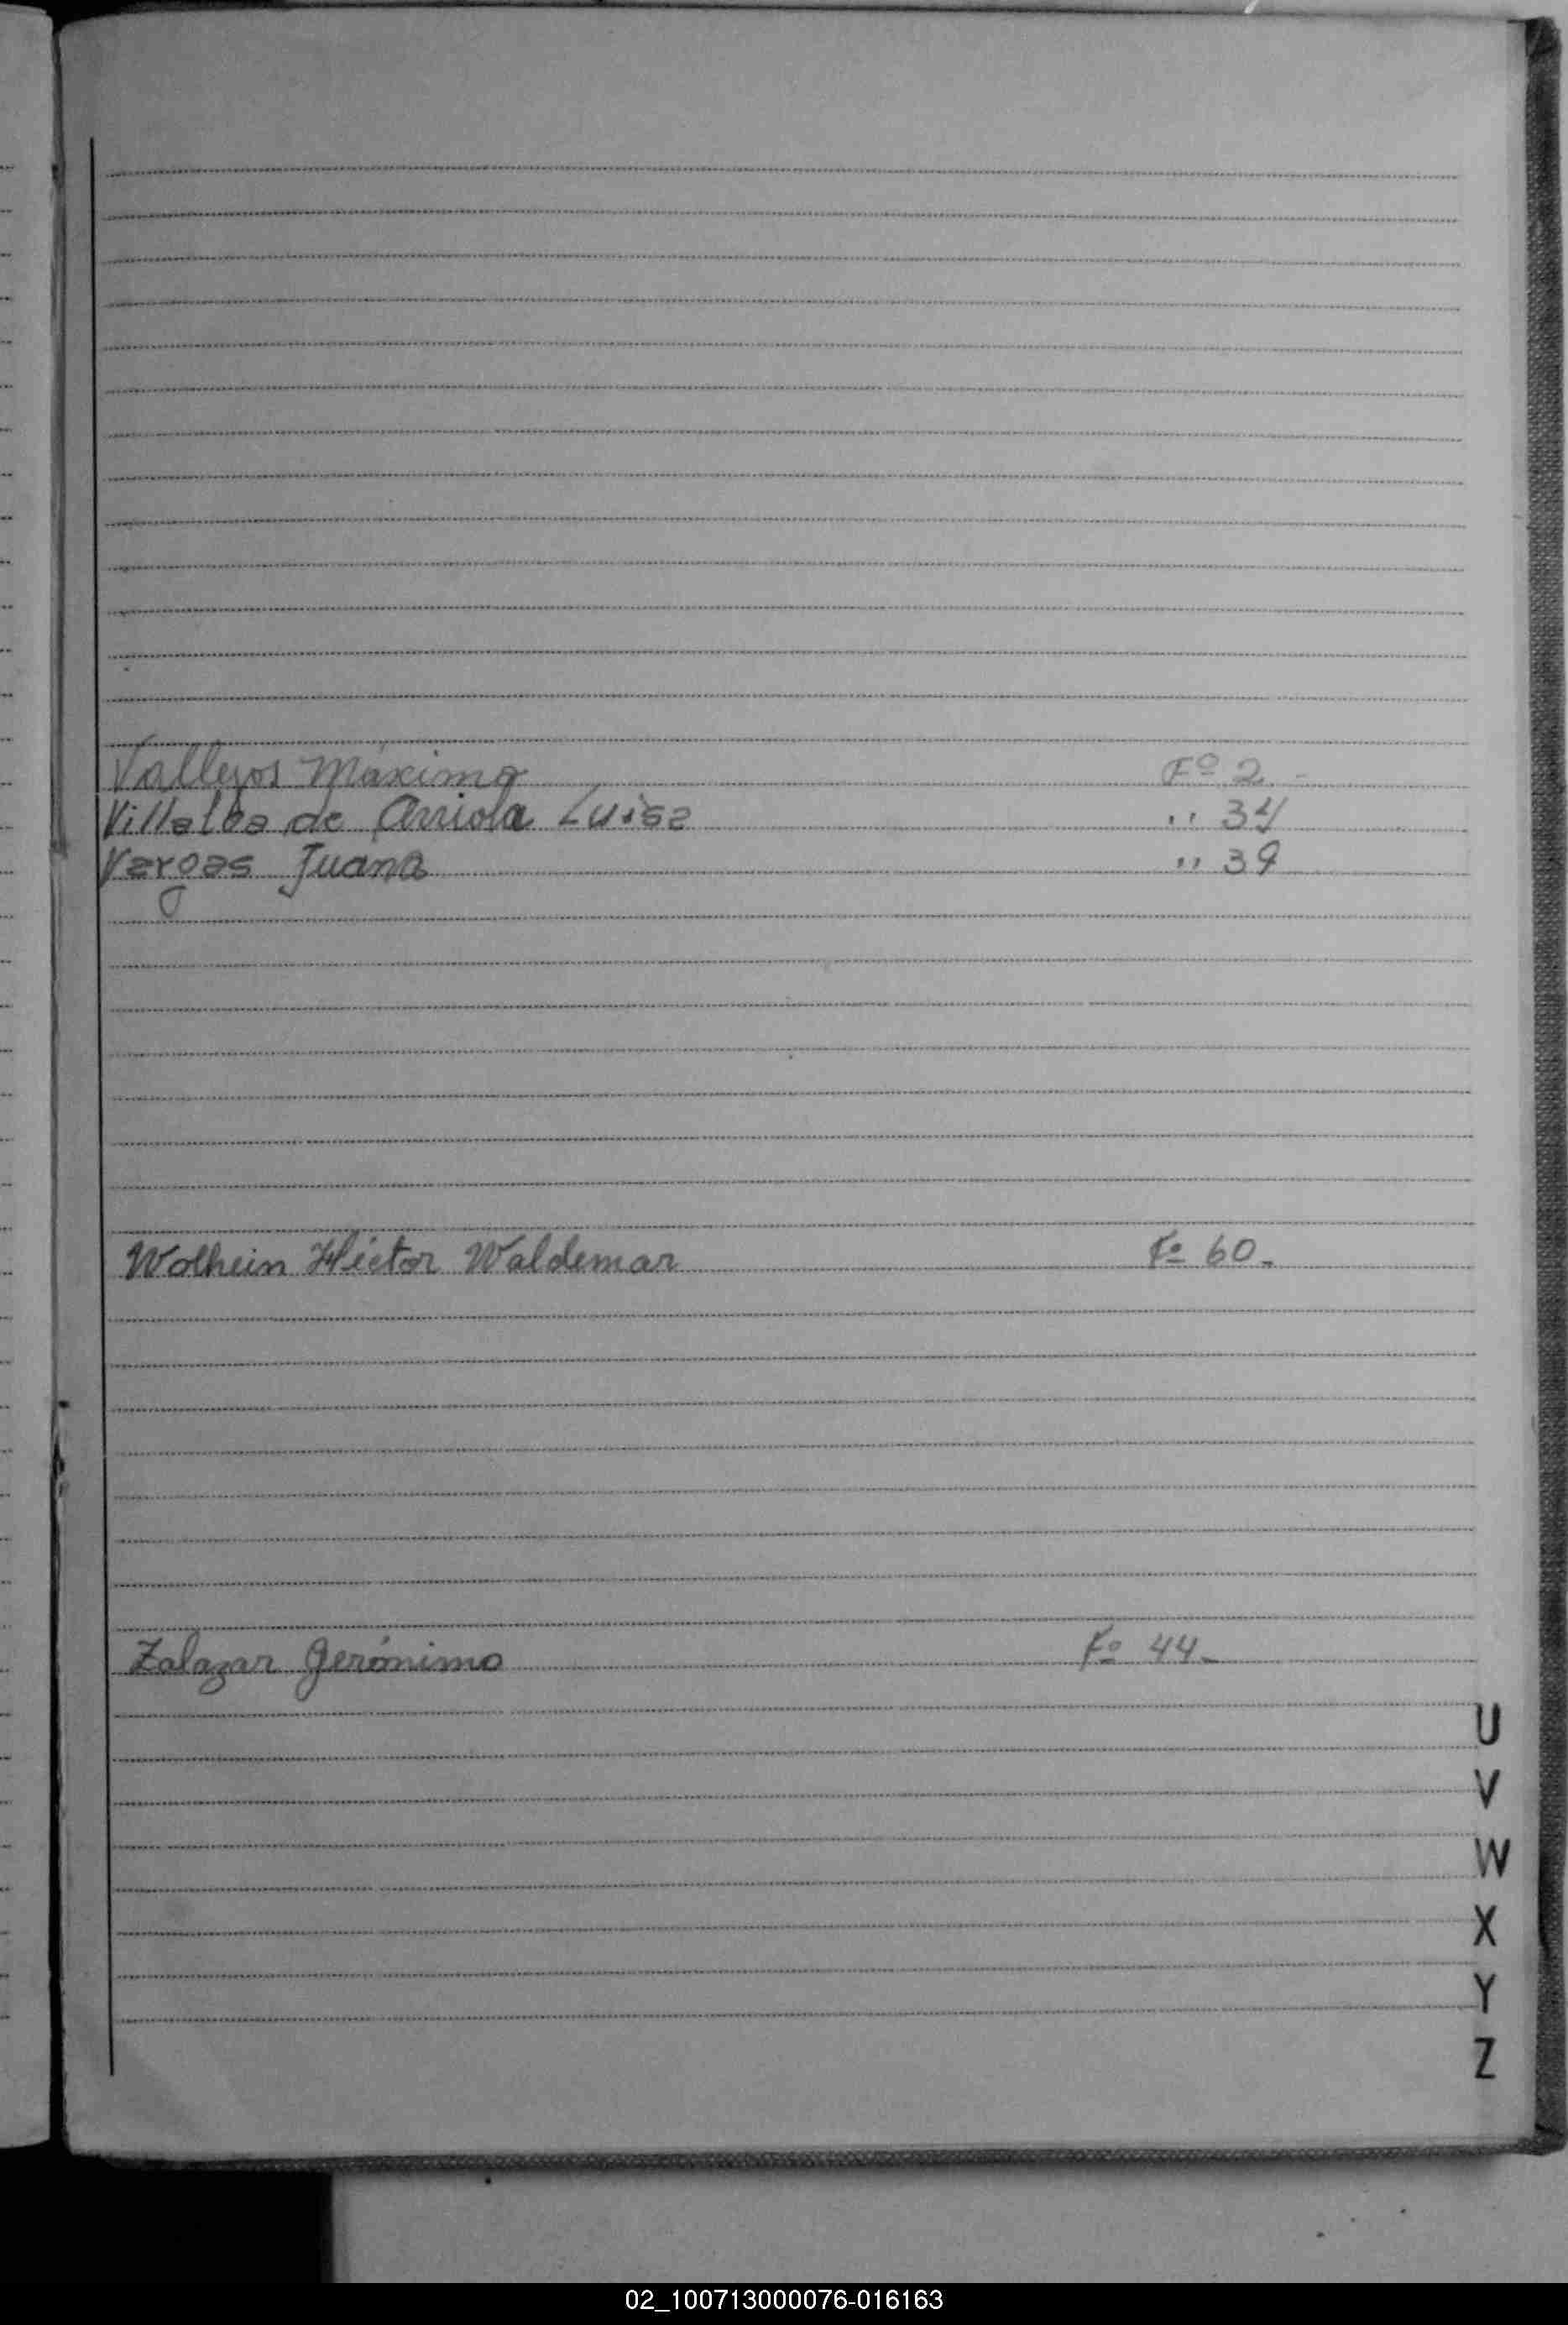 Vallejos Máximo Fº 2.-
Villalba de Arriola Luisa " 34
Vargas Juana " 39
Wolhein Héctor Waldemar Fº 60.-
Zalazar Gerónimo Fº 44.-
U
V
W
X
Y
Z
02_100713000076-016163